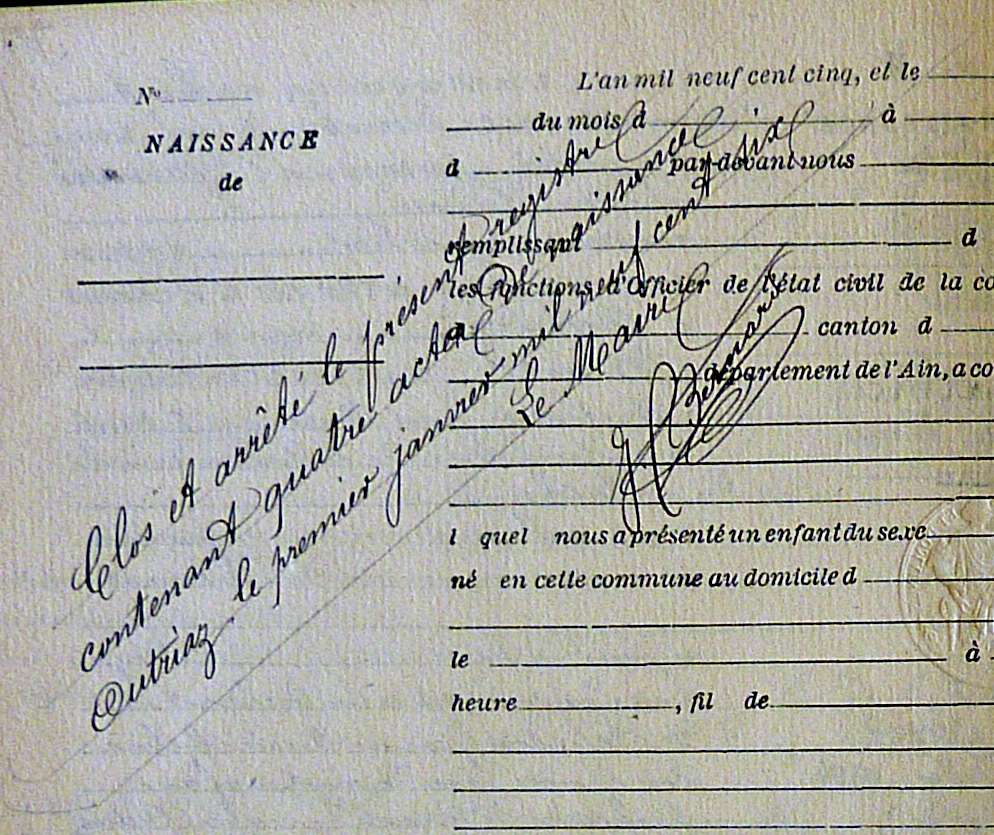 N°
NAISSANCE
de
L'an mil neuf cent cinq, et le
du mois d à
d par-devant nous
remplissant d
les fonctions d'Officier de l'état civil de la co
d canton d
département de l'Ain, a co
l quel nous a présenté un enfant du sexe
né en cette commune au domicile d
le à
heure , fil de
Clos et arrêté le présent registre
contenant quatre actes de naissance
Outriaz le premier janvier mil neuf cent six
Le Maire